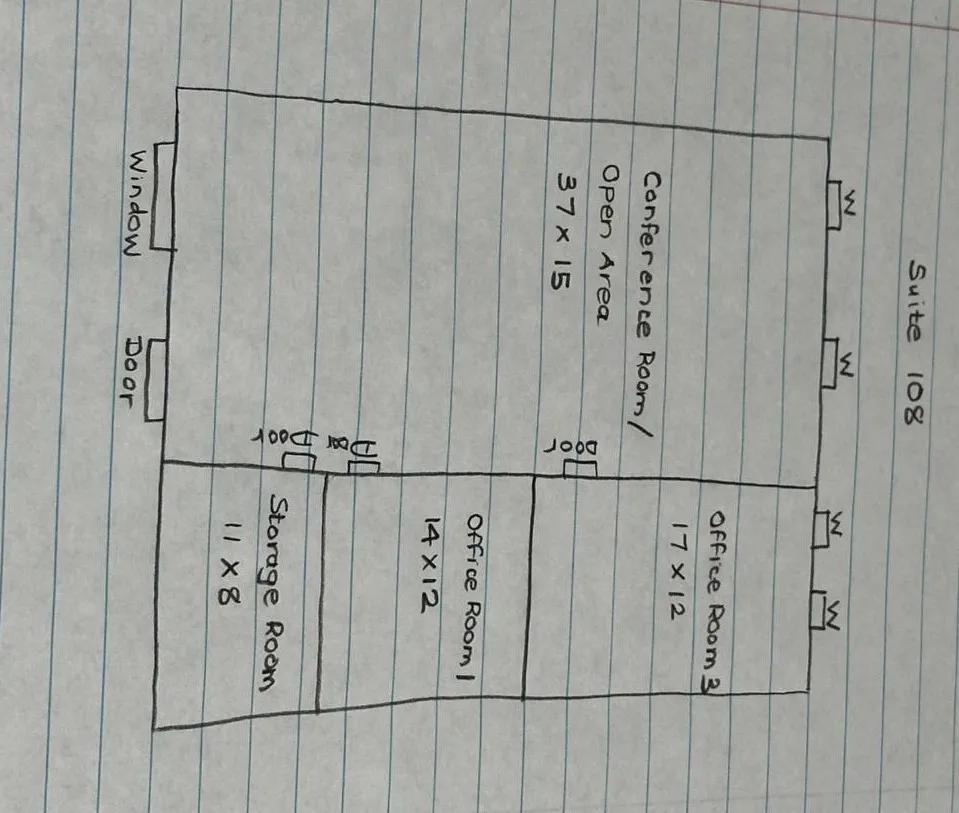 Suite 108
W
W
W
W
Conference Room/
Open Area
37 x 15
Office Room 3
17 x 12
Door
Office Room 1
14 x 12
Door
Storage Room
11 x 8
Door
Window
Door